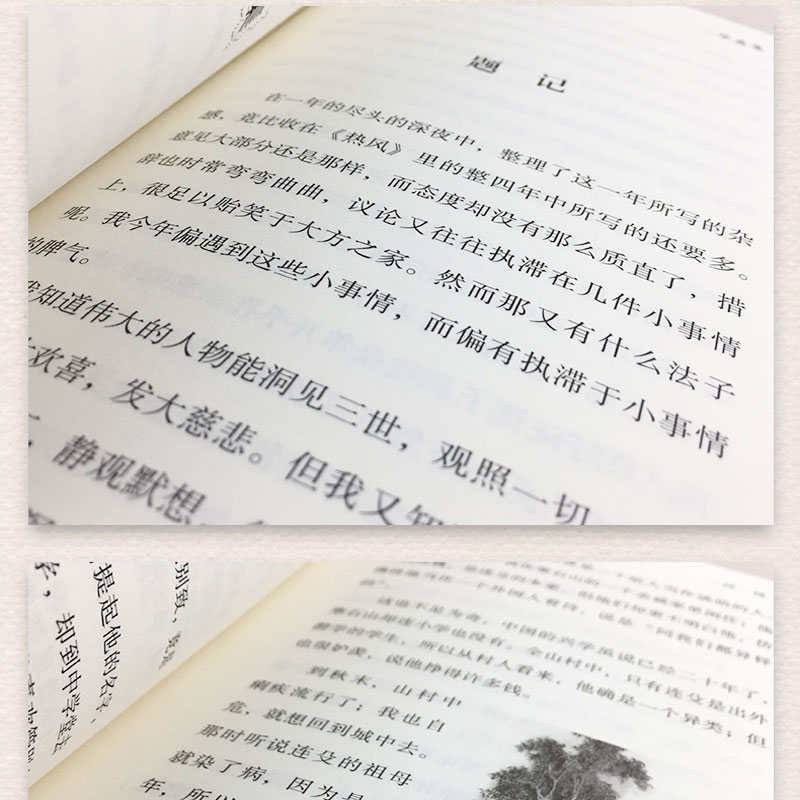 题 记
在一年的尽头的深夜中，整理了这一年所写的杂
感，竟比收在《热风》里的整四年中所写的还要多。
意见大部分还是那样，而态度却没有那么质直了，措
辞也时常弯弯曲曲，议论又往往执滞在几件小事情
上，很足以贻笑于大方之家。然而那又有什么法子
呢。我今年偏遇到这些小事情，而偏有执滞于小事情
的脾气。
我知道伟大的人物能洞见三世，观照一切
大欢喜，发大慈悲。但我又知
静观默想
提起他的名字，
却到中学堂去
别致，竟是
这也不足为奇，中国的兴学虽说已经二十年了，
寒石山却连小学也没有。全山村中，只有连殳是出外
游学的学生，所以从村人看来，他确是一个异类；但
也很妒羡，说他挣得许多钱。
到秋末，山村中
痢疾流行了；我也自
危，就想回到城中去。
那时听说连殳的祖母
就染了病，因为是
年，所以